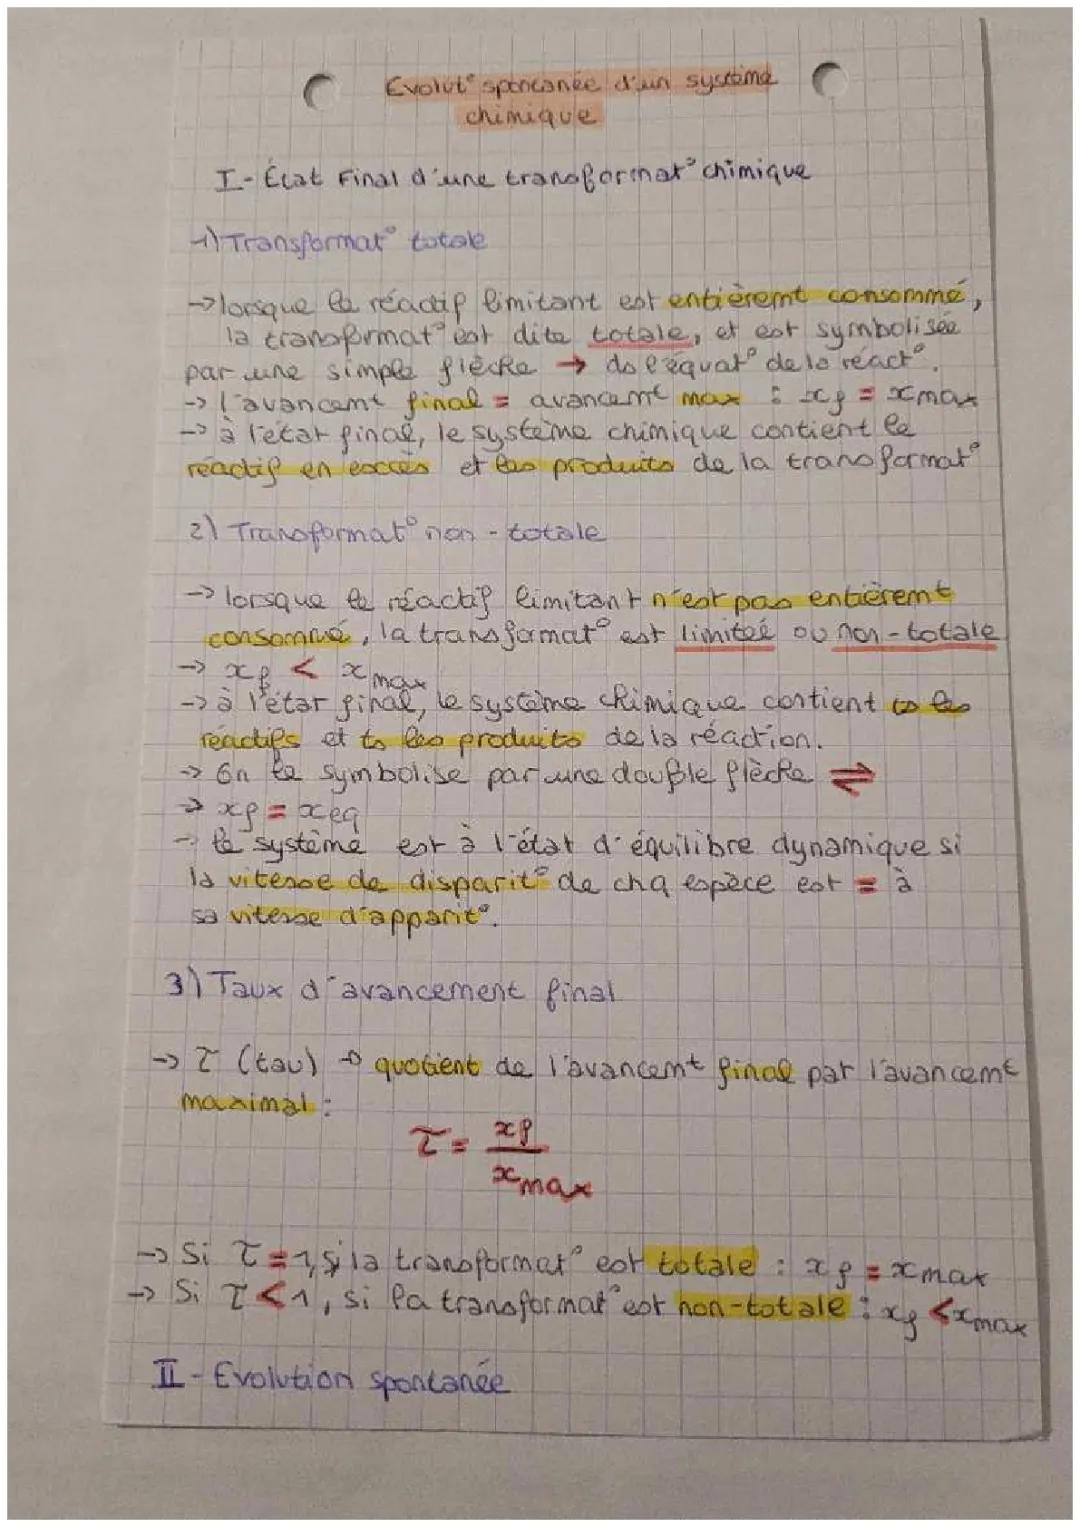 Evolut° spontanée d'un système
chimique
I - État Final d'une transformat° chimique
1) Transformat° totale
→ lorsque le réactif limitant est entièremt consommé,
la transformat° est dite totale, et est symbolisée
par une simple flèche → ds l'équat° de la réact°.
→ l'avancemt final = avancemt max : xf = xmax
→ à l'état final, le système chimique contient le
réactif en excès et les produits de la transformat°
2) Transformat° non-totale
→ lorsque le réactif limitant n'est pas entièremt
consommé, la transformat° est limitée ou non-totale
→ xf < xmax
→ à l'état final, le système chimique contient ts les
réactifs et ts les produits de la réaction.
→ On le symbolise par une double flèche ⇌
→ xf = xeq
→ le système est à l'état d'équilibre dynamique si
la vitesse de disparit° de chq espèce est = à
sa vitesse d'apparit°.
3) Taux d'avancement final
→ τ (tau) → quotient de l'avancemt final par l'avancemt
maximal :
τ = xf
xmax
→ Si τ = 1, si la transformat° est totale : xf = xmax
→ Si τ < 1, si la transformat° est non-totale : xf < xmax
II - Evolution spontanée